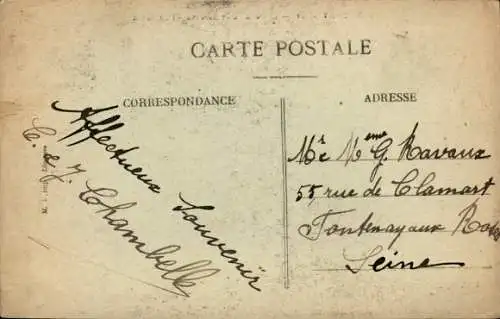 CARTE POSTALE
CORRESPONDANCE
Affectueux Souvenir
C. & J. Chambelle
ADRESSE
Mr Mme G. Ravaux
55 rue de Clamart
Fontenay aux Roses
Seine